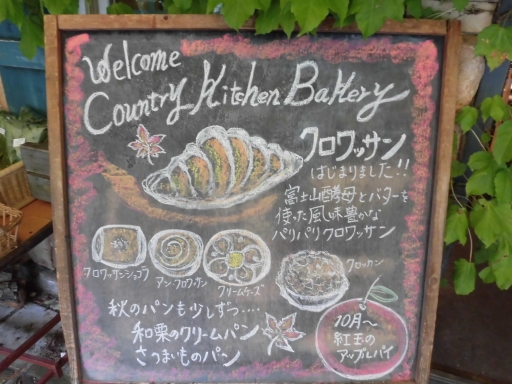 Welcome
Country Kitchen Bakery
クロワッサン
はじまりました!!
富士山酵母とバターを
使った風味豊かな
パリパリクロワッサン
クロワッサンショコラ
アンクロワッサン
クリームチーズ
秋のパンも少しずつ....
和栗のクリームパン
さつまいものパン
10月~
紅玉の
アップルパイ